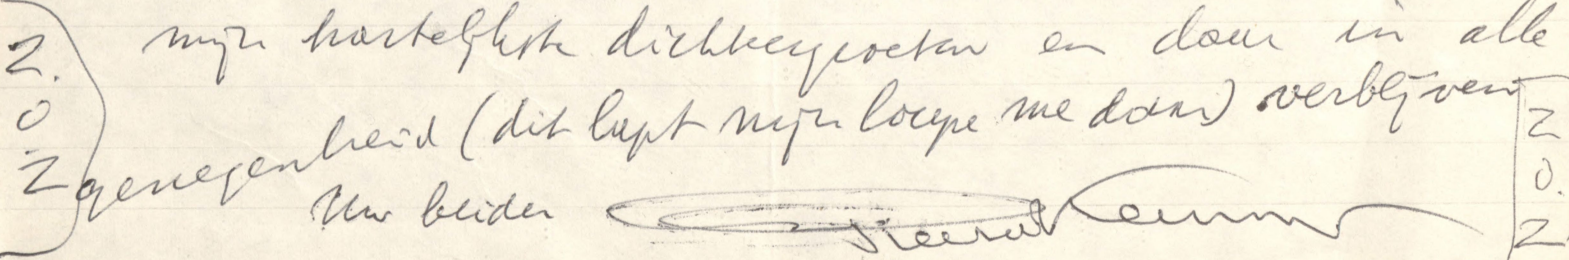 mijn hartelijkste dichtergroeten en door in alle
genegenheid (dit lapt mijn loupe me daar) verblijven
Uw beider
Z.
O
Z
Z
O.
Z